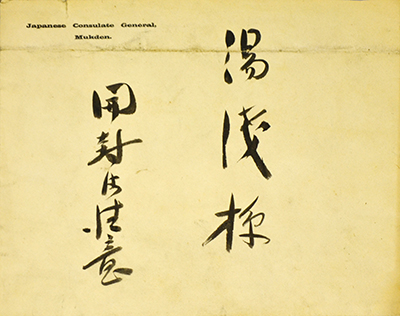 Japanese Consulate General,
Mukden.
湯浅様
開封御意